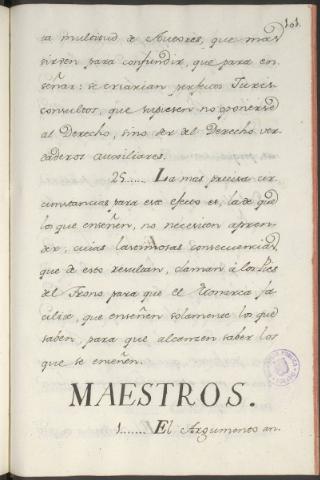 101.
ta multitud de Autores, que mas
sirven para confundir, que para en-
señar: se criarian perfectos Juris-
consultos, que supiesen no oponerse
al Derecho, sino ser del Derecho ver-
daderos auxiliares.
25...... La mas precisa cir-
cunstancias para este efecto es, la de que
los que enseñen, no necesiten apren-
der, cuias lastimosas consecuencias,
que de esto resultan, claman á los Pies
del Trono para que el Monarca fa-
cilite, que enseñen solamente los que
saben, para que alcanzen saber los
que se enseñen.
MAESTROS.
1....... El Argumento an-